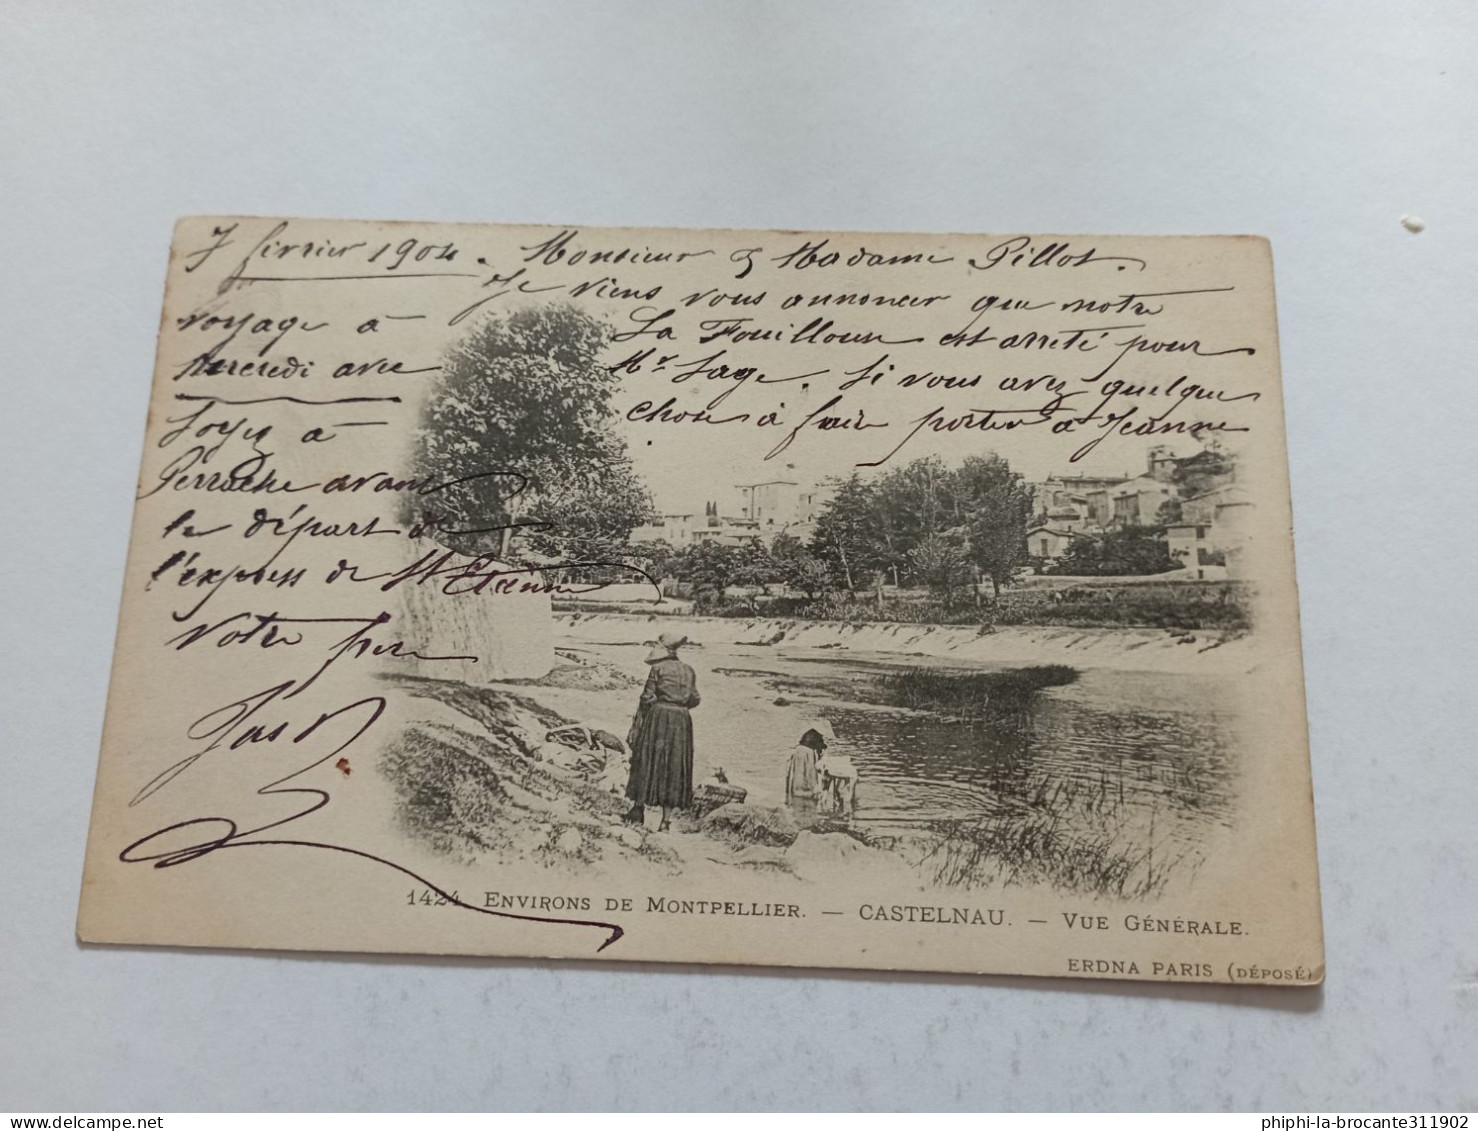 7 février 1904. Monsieur & Madame Pillot.
Je viens vous annoncer que notre
voyage à La Fouillouse est arrêté pour
mercredi avec Mr Sage. Si vous avez quelque
chose à faire porter à Jeanne
Soyez à
Perrache avant
le départ de
l'express de St Etienne
Votre frère
1424. ENVIRONS DE MONTPELLIER. — CASTELNAU. — VUE GÉNÉRALE.
ERDNA PARIS (DÉPOSÉ)
phiphi-la-brocante311902